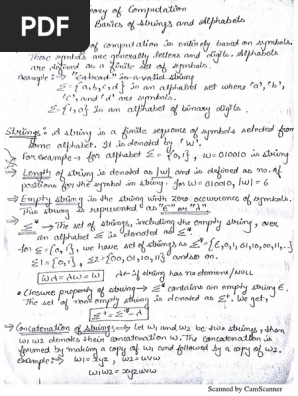 PDF
Theory of Computation
Basics of Strings and Alphabets
of computation is entirely based on symbols.
These symbols are generally letters and digits. Alphabets
are defined as a finite set of symbols.
example:→ "cabead" is a valid string
Σ = {a, b, c, d} is an alphabet set where 'a', 'b',
'c', and 'd' are symbols.
Σ = {1, 0} is an alphabet of binary digits.
Strings: A string is a finite sequence of symbols selected from
some alphabet. It is denoted by 'W'.
For example → for alphabet Σ = {0,1}, w=010010 is string
⇒ Length of string is denoted as |w| and is defined as no. of
positions for the symbol in string. for W=010010, |W|=6
⇒ Empty string is the string with zero occurrence of symbols.
This string is represented as "ε" or "λ"
⇒ Σ* → The set of strings, including the empty string, over
an alphabet Σ is denoted as Σ*.
for Σ={0,1}, we have set of strings as Σ*={ε,0,1,01,10,00,11,..}
Σ1 = {0,1}, Σ2={00,01,10,11} and so on.
Wλ = λW = W
λ = if string has no element/NULL
• Closure property of string → Σ* contains an empty string ε.
The set of non empty string is denoted as Σ+. We get,
Σ+ = Σ* - λ
⇒ Concatenation of strings ⇒ let W1 and W2 be two strings, then
W1 W2 denotes their concatenation W. The concatenation is
formed by making a copy of W1 and followed by a copy of W2.
example:→ W1 = xyz, W2 = uvw
W1W2 = xyzuvw
Scanned by CamScanner